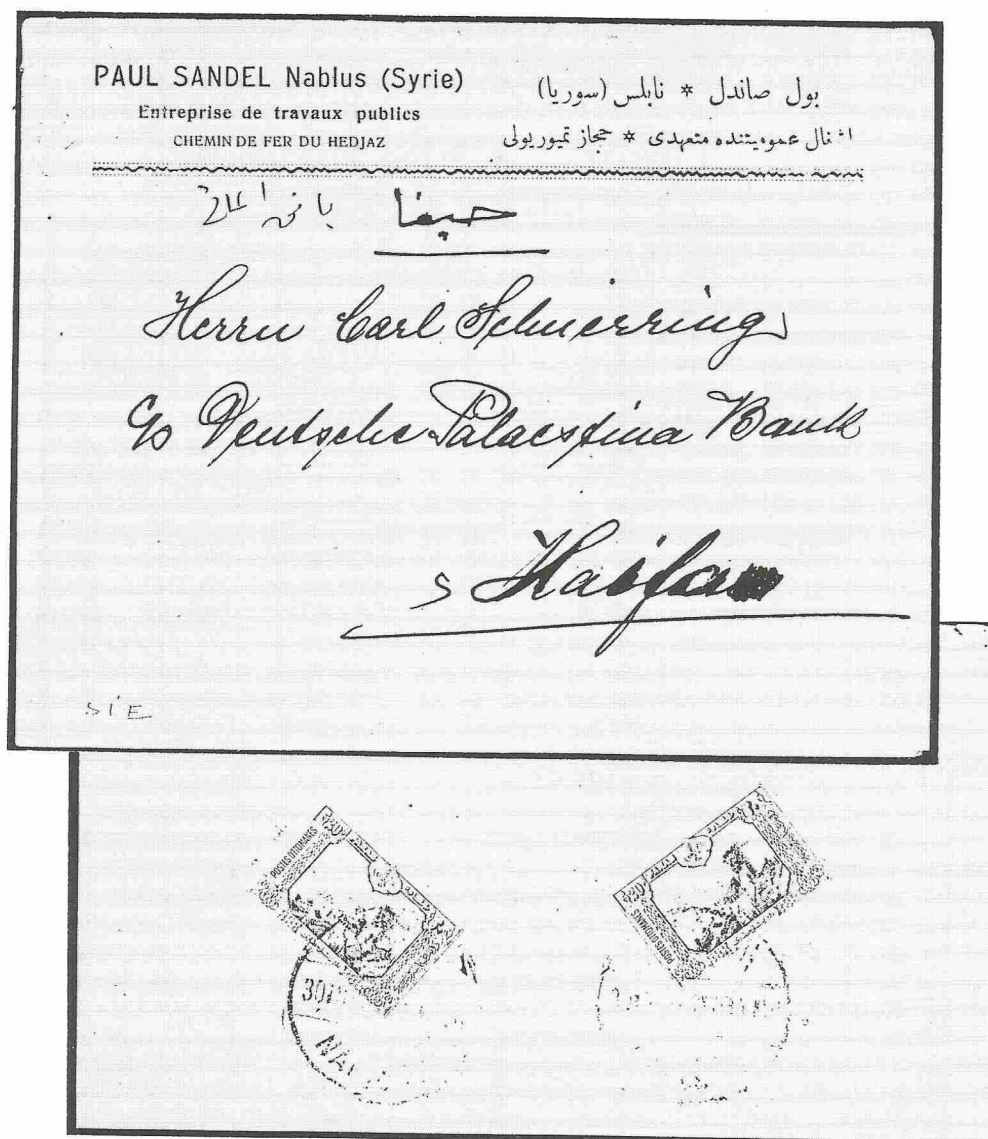 PAUL SANDEL Nablus (Syrie)
Entreprise de travaux publics
CHEMIN DE FER DU HEDJAZ
بول صاندل * نابلس (سوريا)
متعهدى * حجاز تيموريولى
حيفا
Herrn Carl Schnerring
c/o Deutsche Palaestina Bank
Haifa
SIE
POSTES OTTOMANES
POSTES OTTOMANES